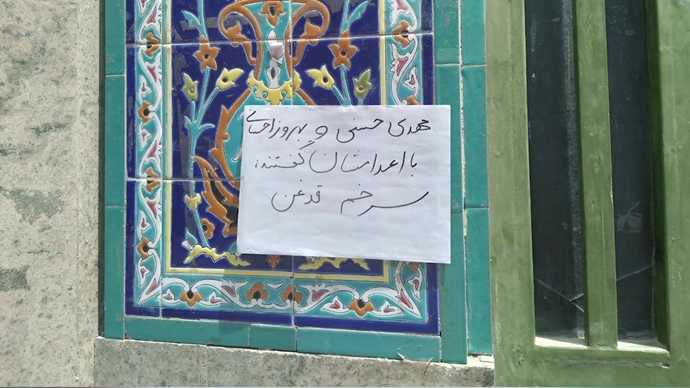 مهدی حسنی و بهروز احسانی
با اعدامشان گفتند:
سر خم قدغن